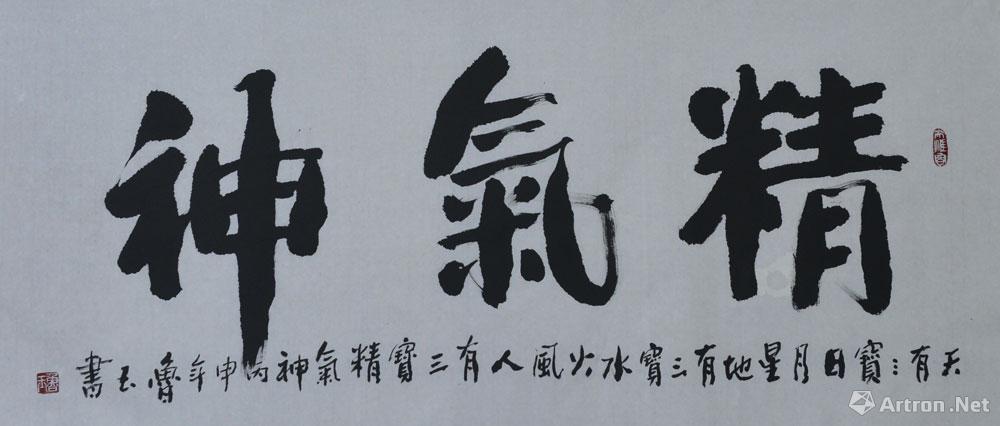 精氣神
天有三寶日月星地有三寶水火風人有三寶精氣神丙申年魯玉書
Artron.Net